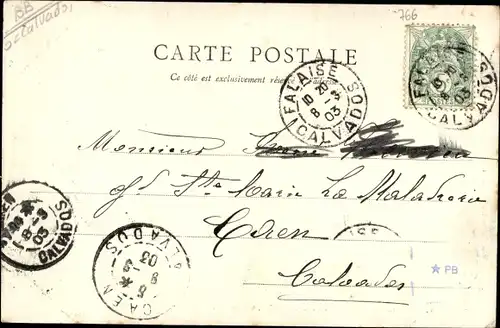 BB
Calvados
766
CARTE POSTALE
Ce côté est exclusivement réservé à l'adresse
FALAISE
10 20
8 -3
03
CALVADOS
FALAISE
10 20
8 -3
03
CALVADOS
Monsieur
Ste Marie La Maladrerie
Caen
Calvados
CAEN
8 -3
03
CALVADOS
CAEN
9 3
03
CALVADOS
PB